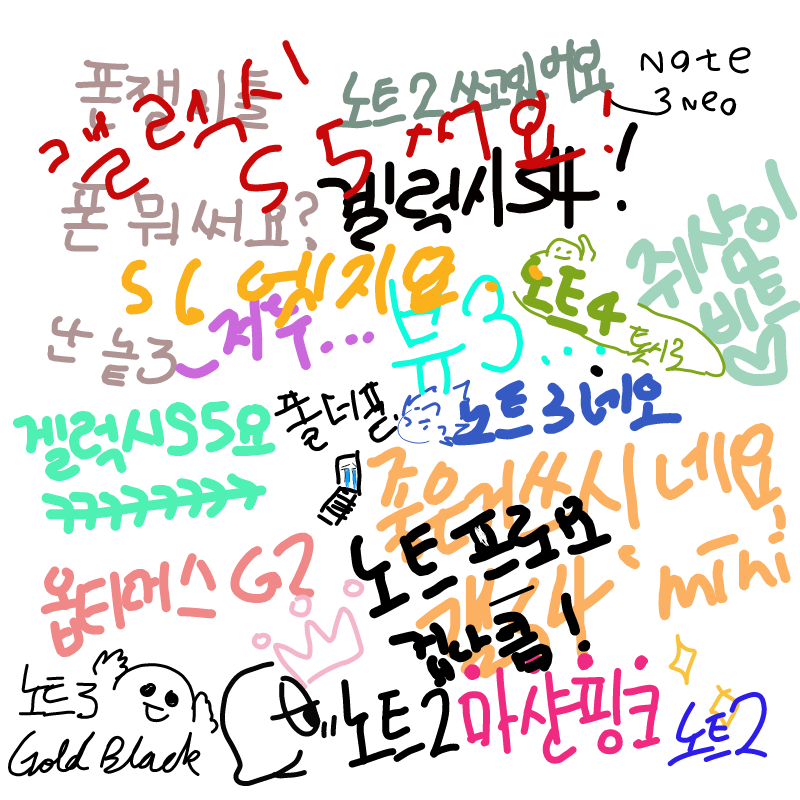 폰쟁이들
노트2 쓰고있어요
Note
3 Neo
갤럭시
S5 써요!
폰 뭐 써요?
겔럭시S4!
쥐샤인
비몽
S6 엣지요
노트4
난 놑3
저두...
뷰3...
겔럭시S5요
폴더폰.
노트3네오
ㅋㅋㅋㅋㅋㅋㅋ
좋은거쓰시네요
옵티머스G2
노트프로요
갤S4 mini
겁나큼!
노트3
Gold Black
노트2
마샨핑크
노트2